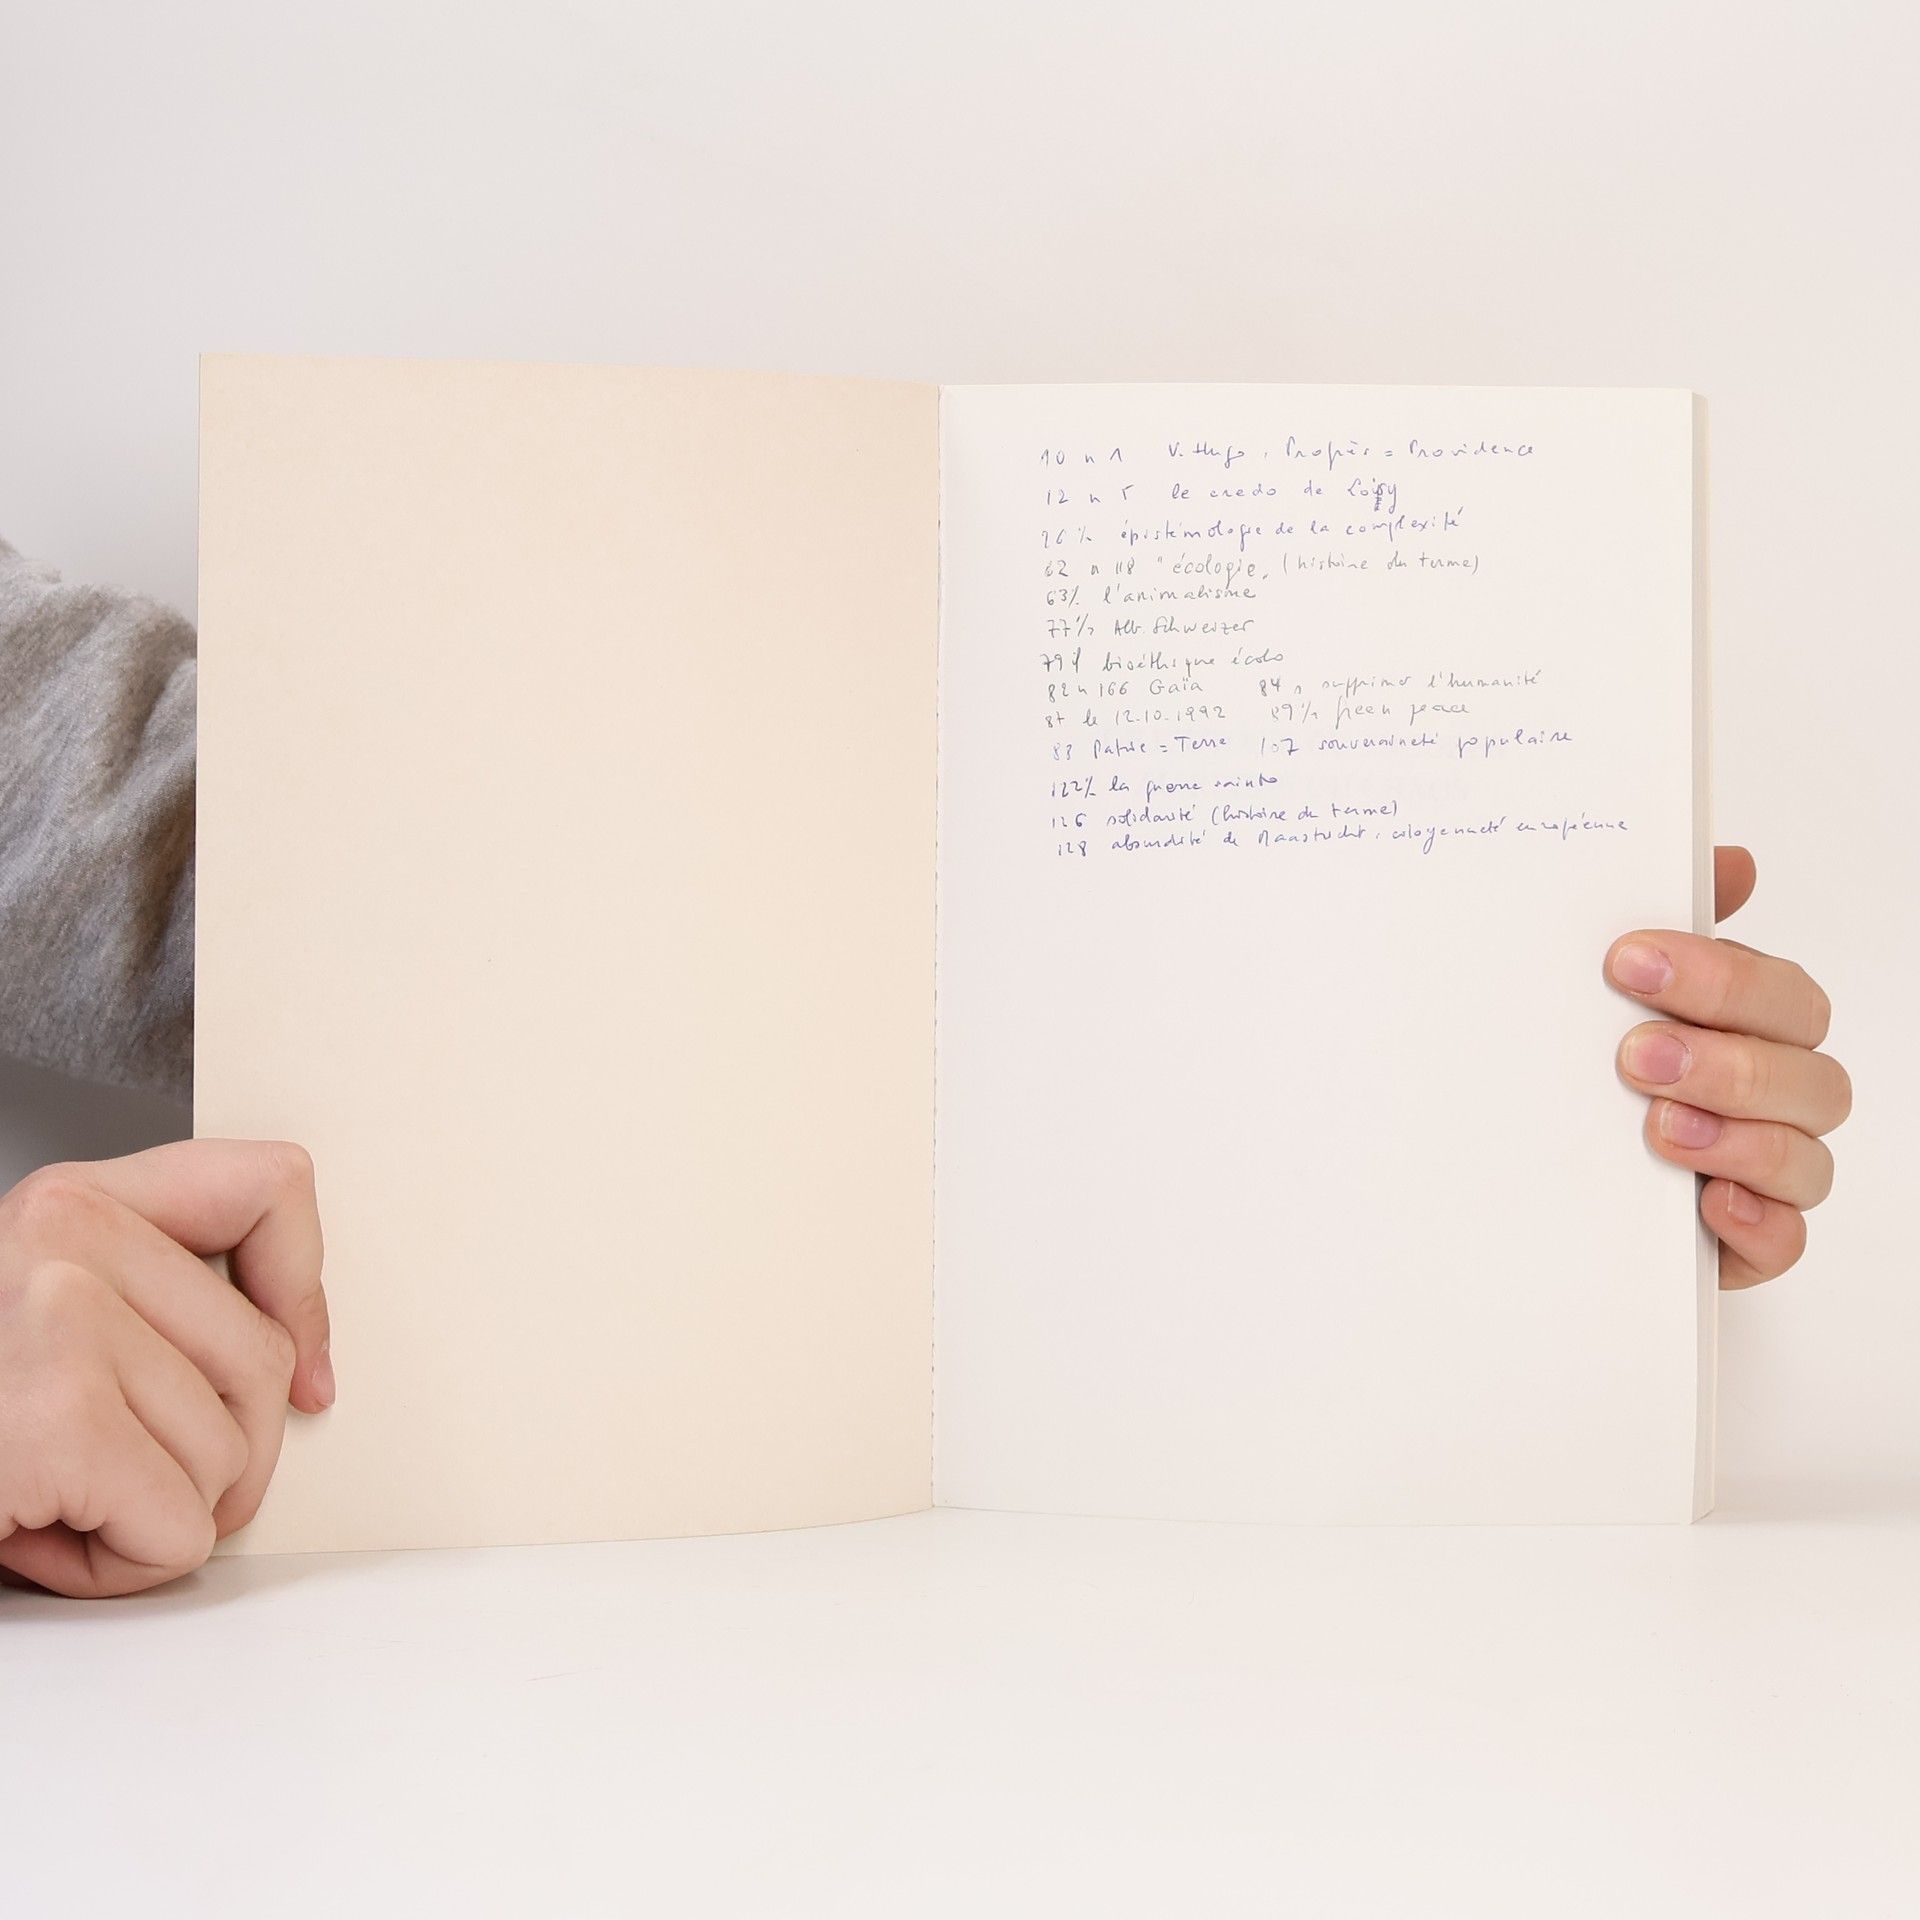 10 n 1 V. Hugo : Progrès = Providence
12 n 5 le credo de Loisy
26 % épistémologie de la complexité
62 n 118 "écologie" (histoire du terme)
63 % l'animalisme
77 % Alb. Schweizer
79 bioéthique écolo
82 n 166 Gaïa 84 supprimer l'humanité
87 le 12-10-1992 89 % green peace
83 Patrie = Terre 107 souveraineté populaire
122 % la guerre sainte
126 solidarité (histoire du terme)
128 absurdité de Maastricht : citoyenneté européenne